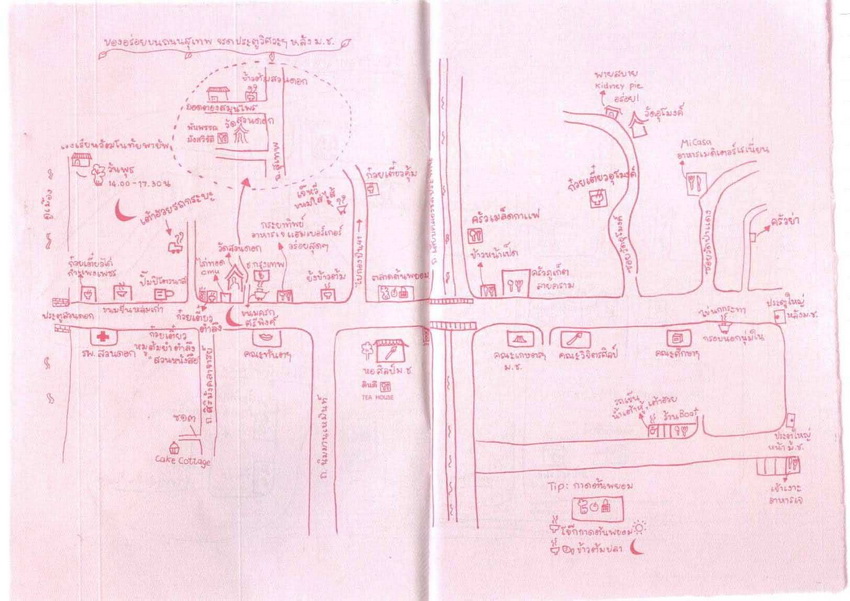 ของอร่อยบนถนนสุเทพ จรดประตูวิศวะฯ หลัง ม.ช.
ข้าวต้มสวนดอก
ยอดตองสมุนไพร
พันพรรณ
มังสวิรัติ
วัดสวนดอก
ถ.สุเทพ
วันพุธ
14.00-17.30 น
ก๋วยเตี๋ยว
กำแพงเพชร
ไก่ทอด
cmu
วัดสวนดอก
ธ.กรุงเทพ
กระยาทิพย์
อาหารเจ แฮมเบอร์เกอร์
อร่อยสุดๆ
ก๋วยเตี๋ยวตุ้ม
กาดต้นพยอม
ประตูสวนดอก
ขนมจีนหล่มเก่า
ก๋วยเตี๋ยว
ตำลึง
ขนมครก
ศรีพิงค์
รพ.สวนดอก
ก๋วยเตี๋ยว
หมูต้มยำตำลึง
"สวนหนังสือ"
ถ.ศิริมังคลาจารย์
คณะทันตฯ
ถ.นิมมานเหมินท์
หอศิลป์ ม.ช
TEA HOUSE
Cake Cottage
พายสบาย
Kidney pie
อร่อย!
วัดอุโมงค์
ก๋วยเตี๋ยวอุโมงค์
ซอยวัดอุโมงค์
Mi Casa
อาหารเมดิเตอร์เรเนียน
ซอยวัดป่าแดง
ครัวย่า
ครัวเมล็ดกาแฟ
ข้าวหน้าเป็ด
ครัวภูเก็ต
ลายคราม
ไข่นกกระทา
ประตูใหญ่
หลัง ม.ช.
คณะเกษตรฯ
ม.ช.
คณะวิจิตรศิลป์
คณะศึกษาฯ
รถเข็น
น้ำเต้าหู้
ร้าน Boat
ประตูใหญ่
หน้า ม.ช.
อาหารเจ
Tip: กาดต้นพยอม
โจ๊กกาดต้นพยอม
ข้าวต้มปลา